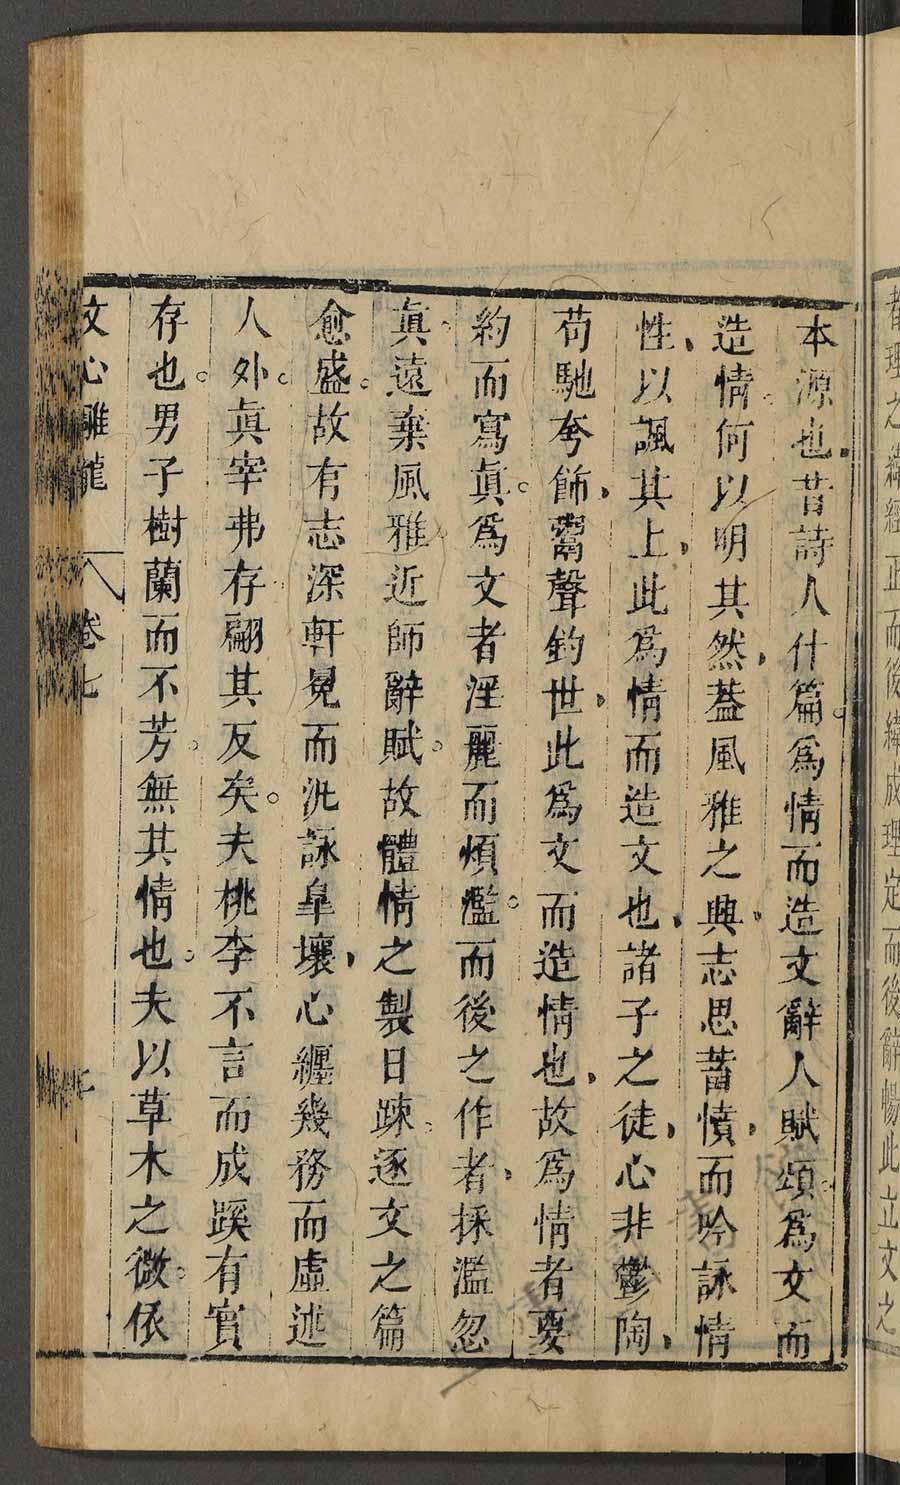 都理之緯經正而後緯成理定而後辭暢此立文之
本源也昔詩人什篇爲情而造文辭人賦頌爲文而
造情何以明其然葢風雅之興志思蓄憤而吟詠情
性以諷其上此爲情而造文也諸子之徒心非鬱陶
苟馳夸飾鬻聲釣世此爲文而造情也故爲情者要
約而寫眞爲文者淫麗而煩濫而後之作者採濫忽
眞遠棄風雅近師辭賦故體情之製日踈逐文之篇
愈盛故有志深軒冕而汎詠皐壤心纏幾務而虛述
人外眞宰弗存翩其反矣夫桃李不言而成蹊有實
存也男子樹蘭而不芳無其情也夫以草木之微依
文心雕龍 卷七